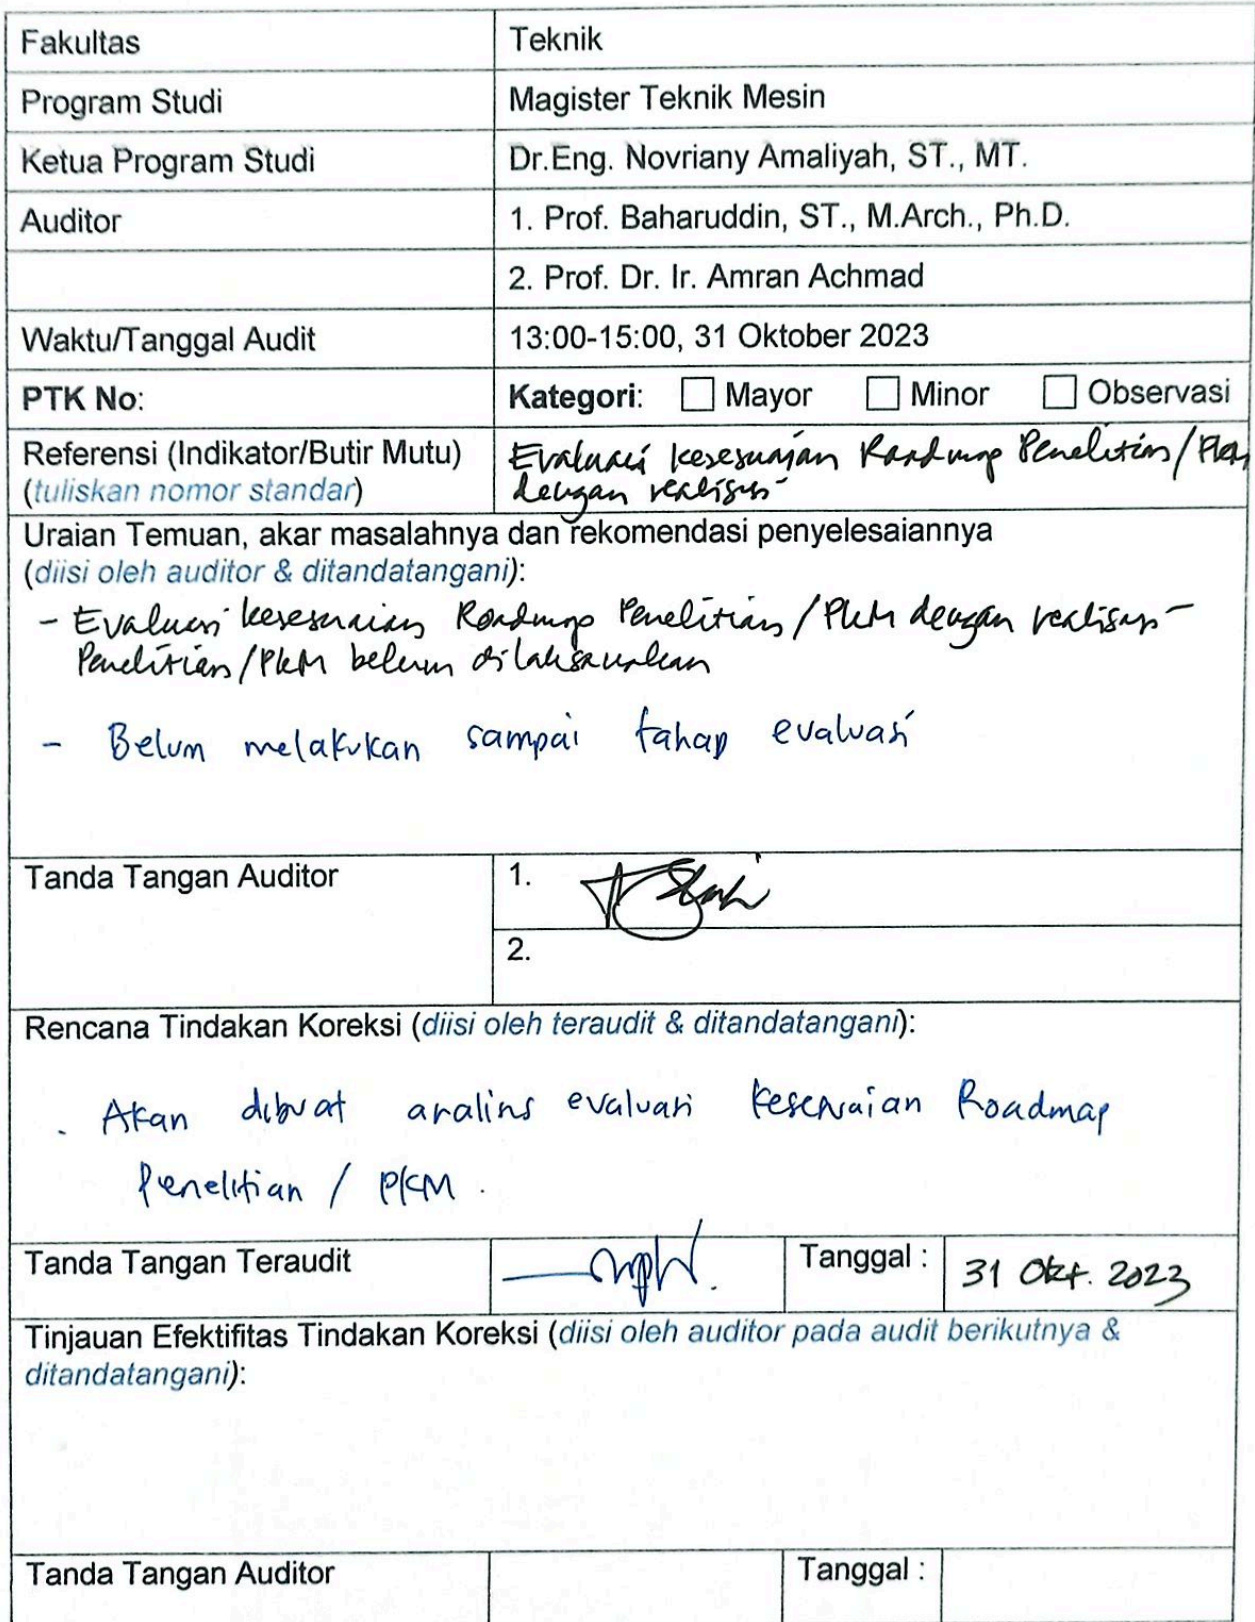 Fakultas Teknik
Program Studi Magister Teknik Mesin
Ketua Program Studi Dr.Eng. Novriany Amaliyah, ST., MT.
Auditor 1. Prof. Baharuddin, ST., M.Arch., Ph.D.
2. Prof. Dr. Ir. Amran Achmad
Waktu/Tanggal Audit 13:00-15:00, 31 Oktober 2023
PTK No: Kategori: Mayor Minor Observasi
Referensi (Indikator/Butir Mutu) Evaluasi kesesuaian Roadmap Penelitian/PkM
(tuliskan nomor standar) dengan realisasi
Uraian Temuan, akar masalahnya dan rekomendasi penyelesaiannya
(diisi oleh auditor & ditandatangani):
- Evaluasi kesesuaian Roadmap Penelitian/PkM dengan realisasi
Penelitian/PkM belum dilaksanakan
- Belum melakukan sampai tahap evaluasi
Tanda Tangan Auditor 1.
2.
Rencana Tindakan Koreksi (diisi oleh teraudit & ditandatangani):
. Akan dibuat analisis evaluasi kesesuaian Roadmap
Penelitian / PKM.
Tanda Tangan Teraudit Tanggal : 31 Okt. 2023
Tinjauan Efektifitas Tindakan Koreksi (diisi oleh auditor pada audit berikutnya &
ditandatangani):
Tanda Tangan Auditor Tanggal :